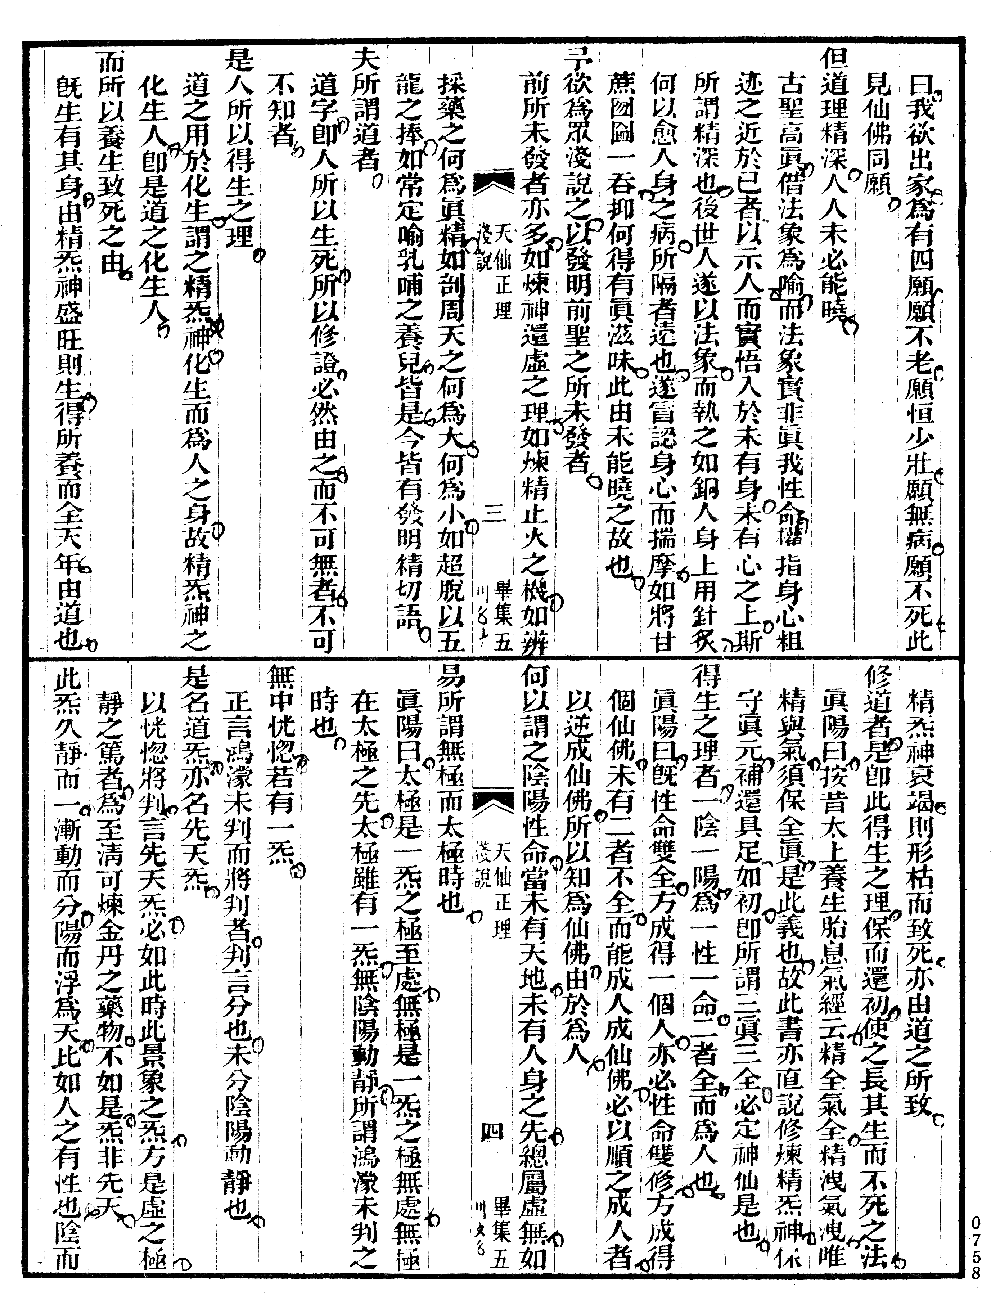 曰我欲出家爲有四願願不老願恒少壯願無病願不死此
見仙佛同願
但道理精深人人未必能曉
古聖高眞借法象爲喻而法象實非眞我性命雖指身心粗
迹之近於已者以示人而實悟人於未有身未有心之上斯
所謂精深也後世人遂以法象而執之如銅人身上用針炙
何以愈人身之病所隔者遠也遂盲認身心而揣摩如將甘
蔗囫圇一吞抑何得有眞滋味此由未能曉之故也
予欲爲眾淺說之以發明前聖之所未發者
前所未發者亦多如煉神還虛之理如煉精止火之機如辨
天仙正理
淺說
三
畢集五
採藥之何爲眞精如剖周天之何爲大何爲小如超脫以五
龍之捧如常定喻乳哺之養兒皆是今皆有發明精切語
夫所謂道者
道字卽人所以生死所以修證必然由之而不可無者不可
不知者
是人所以得生之理
道之用於化生謂之精炁神化生而爲人之身故精炁神之
化生人卽是道之化生人
而所以養生致死之由
旣生有其身由精炁神盛旺則生得所養而全天年由道也
精炁神衰竭則形枯而致死亦由道之所致
修道者是卽此得生之理保而還初使之長其生而不死之法
眞陽曰按昔太上養生胎息氣經云精全氣全精洩氣洩唯
精與氣須保全眞是此義也故此書亦直說修煉精炁神保
守眞元補還具足如初卽所謂三眞三全必定神仙是也
得生之理者一陰一陽爲一性一命二者全而爲人也
眞陽曰旣性命雙全方成得一個人亦必性命雙修方成得
個仙佛未有二者不全而能成人成仙佛必以順之成人者
以逆成仙佛所以知爲仙佛由於爲人
何以謂之陰陽性命當未有天地未有人身之先總屬虛無如
天仙正理
淺說
四
畢集五
易所謂無極而太極時也
眞陽曰太極是一炁之極至處無極是一炁之極無處無極
在太極之先太極雖有一炁無陰陽動靜所謂鴻濛未判之
時也
無中恍惚若有一炁
正言鴻濛未判而將判者判言分也未分陰陽動靜也
是名道炁亦名先天炁
以恍惚將判言先天炁必如此時此景象之炁方是虛之極
靜之篤者爲至清可煉金丹之藥物不如是炁非先天
此炁久靜而一漸動而分陽而浮爲天比如人之有性也陰而
0758